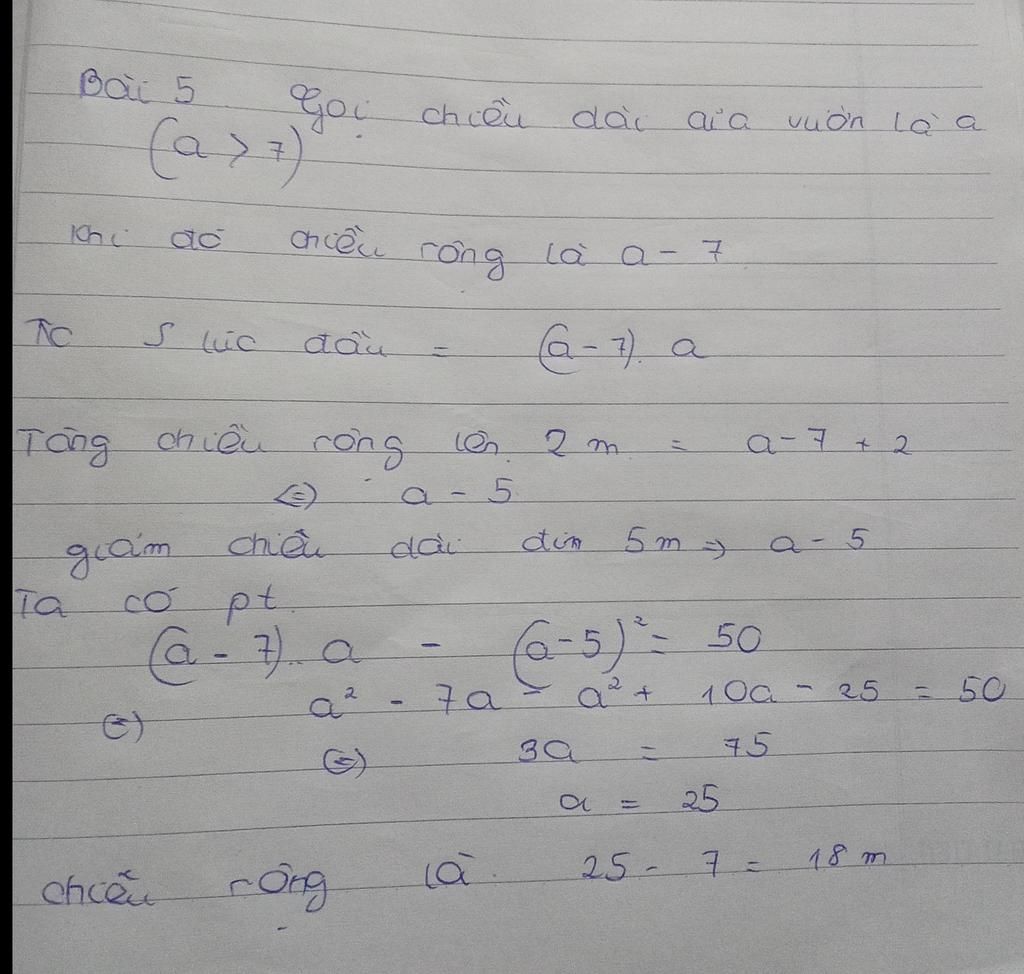 Bài 5 Gọi chiều dài của vườn là a
(a > 7)
Khi đó chiều rộng là a - 7
Tc S lúc đầu = (a - 7). a
Tăng chiều rộng lên 2 m = a - 7 + 2
<=> a - 5
giảm chiều dài đin 5m => a - 5
Ta có pt
(a - 7). a - (a - 5)² = 50
<=> a² - 7a - a² + 10a - 25 = 50
<=> 3a = 75
a = 25
chiều rộng là 25 - 7 = 18 m